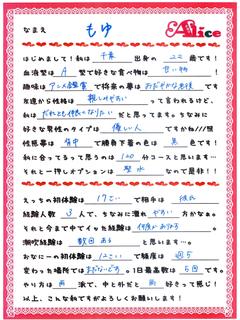 なまえ もゆ
Alice
はじめまして！私は 千葉 出身の 22 歳です！
血液型は A 型で好きな食べ物は 甘い物 ！
趣味は アニメ鑑賞 で将来の夢は おだやかな老後 です
友達から性格は 親しみやすい って言われるけど、
私は だれとも仲良くなりたい だと思ってます。ちなみに
好きな男性のタイプは 優しい人 ですかね///照
性感帯は 背中 で勝負下着の色は 黒 色です！
私に会ってするって思うのは 120 分コースと思います…
それと一押しオプションは 聖水 なので是非！！
えっちの初体験は 17さい で相手は 彼れ
経験人数 3 人で、ちなみに濡れ やすい 方かなぁ。
それと今まで中イッた経験は 何度かあります
潮吹経験は 数回ある と思います…。
おなにーの初体験は 12さい で頻度は 週5
変わった場所では まだないです。1日最高数は 5 回です。
やり方は 両 派で、中と外だと 両 好きって感じ！
以上、こんな私ですがよろしくお願いします！